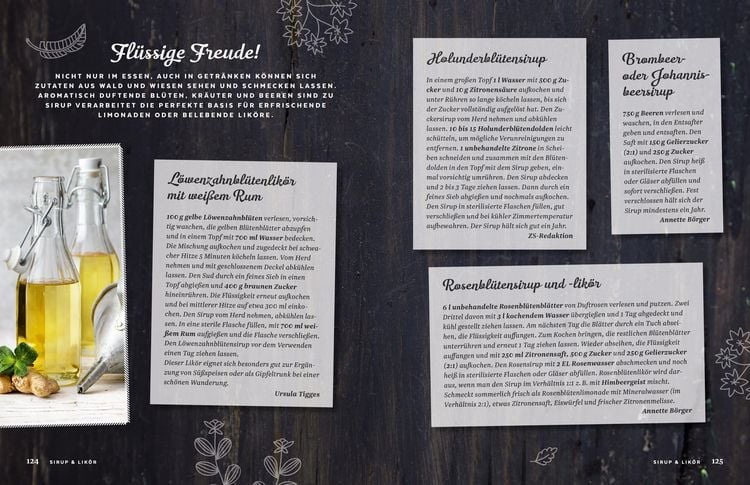 Flüssige Freude!
NICHT NUR IM ESSEN, AUCH IN GETRÄNKEN KÖNNEN SICH
ZUTATEN AUS WALD UND WIESEN SEHEN UND SCHMECKEN LASSEN.
AROMATISCH DUFTENDE BLÜTEN, KRÄUTER UND BEEREN SIND ZU
SIRUP VERARBEITET DIE PERFEKTE BASIS FÜR ERFRISCHENDE
LIMONADEN ODER BELEBENDE LIKÖRE.
Löwenzahnblütenlikör
mit weißem Rum
100 g gelbe Löwenzahnblüten verlesen, vorsich-
tig waschen, die gelben Blütenblätter abzupfen
und in einem Topf mit 700 ml Wasser bedecken.
Die Mischung aufkochen und zugedeckt bei schwa-
cher Hitze 5 Minuten köcheln lassen. Vom Herd
nehmen und mit geschlossenem Deckel abkühlen
lassen. Den Sud durch ein feines Sieb in einen
Topf abgießen und 400 g braunen Zucker
hineinrühren. Die Flüssigkeit erneut aufkochen
und bei mittlerer Hitze auf etwa 300 ml einko-
chen. Den Sirup vom Herd nehmen, abkühlen las-
sen. In eine sterile Flasche füllen, mit 700 ml wei-
ßem Rum aufgießen und die Flasche verschließen.
Den Löwenzahnblütensirup vor dem Verwenden
einen Tag ziehen lassen.
Dieser Likör eignet sich besonders gut zur Ergän-
zung von Süßspeisen oder als Gipfeltrunk bei einer
schönen Wanderung.
Ursula Tigges
124 SIRUP & LIKÖR
Holunderblütensirup
In einem großen Topf 1 l Wasser mit 500 g Zu-
cker und 10 g Zitronensäure aufkochen und
unter Rühren so lange köcheln lassen, bis sich
der Zucker vollständig aufgelöst hat. Den Zu-
ckersirup vom Herd nehmen und abkühlen
lassen. 10 bis 15 Holunderblütendolden leicht
schütteln, um mögliche Verunreinigungen zu
entfernen. 1 unbehandelte Zitrone in Schei-
ben schneiden und zusammen mit den Blüten-
dolden in den Topf mit dem Sirup geben, ein-
mal vorsichtig umrühren. Den Sirup abdecken
und 2 bis 3 Tage ziehen lassen. Dann durch ein
feines Sieb abgießen und nochmals aufkochen.
Den Sirup in sterilisierte Flaschen füllen, gut
verschließen und bei kühler Zimmertemperatur
aufbewahren. Der Sirup hält sich gut ein Jahr.
ZS-Redaktion
Brombeer-
oder Johannis-
beersirup
750 g Beeren verlesen und
waschen, in den Entsafter
geben und entsaften. Den
Saft mit 150 g Gelierzucker
(2:1) und 250 g Zucker
aufkochen. Den Sirup heiß
in sterilisierte Flaschen
oder Gläser abfüllen und
sofort verschließen. Fest
verschlossen hält sich der
Sirup mindestens ein Jahr.
Annette Börger
Rosenblütensirup und -likör
6 l unbehandelte Rosenblütenblätter von Duftrosen verlesen und putzen. Zwei
Drittel davon mit 3 l kochendem Wasser übergießen und 1 Tag abgedeckt und
kühl gestellt ziehen lassen. Am nächsten Tag die Blätter durch ein Tuch absei-
hen, die Flüssigkeit auffangen. Zum Kochen bringen, die restlichen Blütenblätter
unterrühren und erneut 1 Tag ziehen lassen. Wieder abseihen, die Flüssigkeit
auffangen und mit 250 ml Zitronensaft, 500 g Zucker und 250 g Gelierzucker
(2:1) aufkochen. Den Rosensirup mit 2 EL Rosenwasser abschmecken und noch
heiß in sterilisierte Flaschen oder Gläser abfüllen. Rosenblütenlikör wird dar-
aus, wenn man den Sirup im Verhältnis 1:1 z. B. mit Himbeergeist mischt.
Schmeckt sommerlich frisch als Rosenblütenlimonade mit Mineralwasser (im
Verhältnis 2:1), etwas Zitronensaft, Eiswürfel und frischer Zitronenmelisse.
Annette Börger
SIRUP & LIKÖR 125